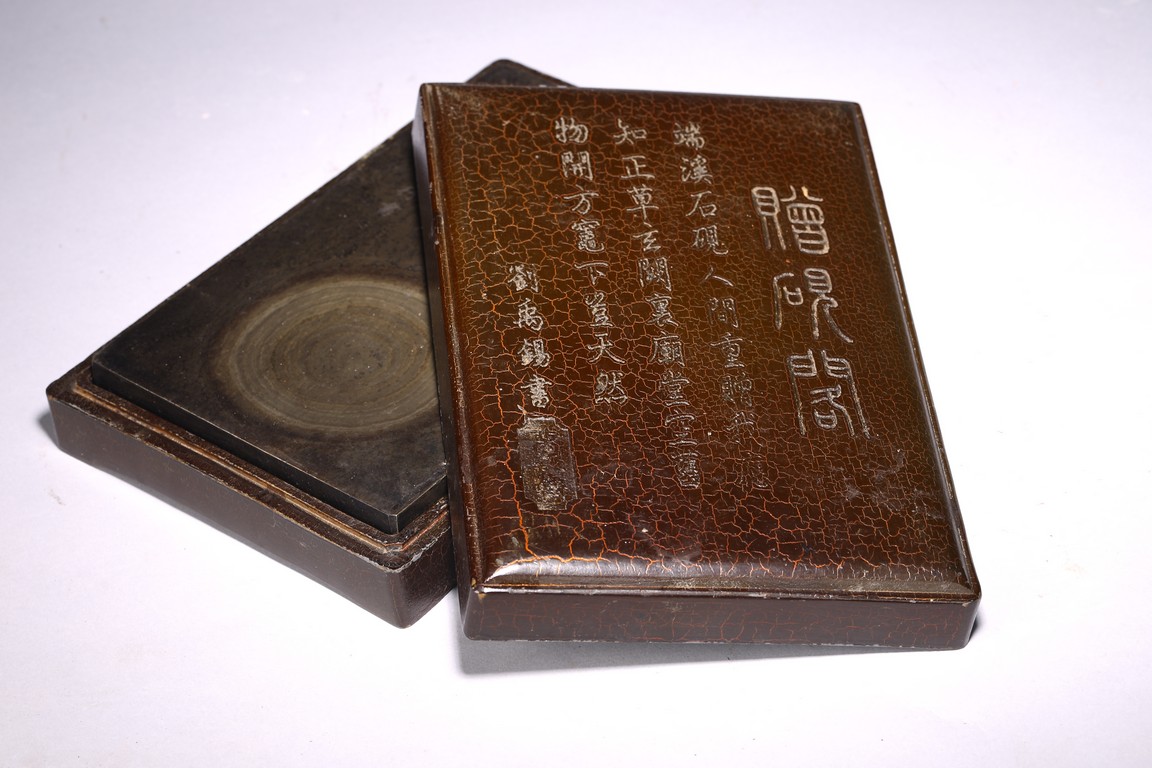 贈硯閣
端溪石硯人間重贈我
知正草玄闕裏廟堂空舊
物開方竈下豈天然
劉禹錫書